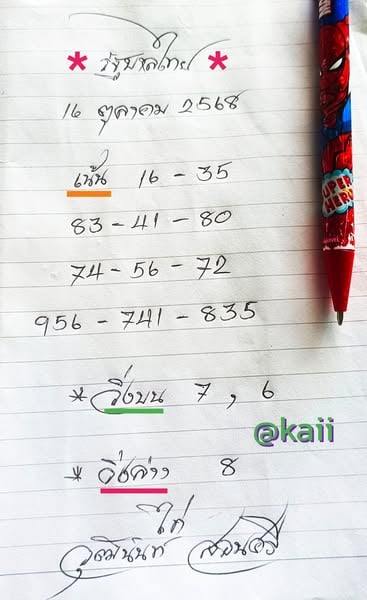 * รัฐบาลไทย *
16 ตุลาคม 2568
เน้น 16 - 35
83 - 41 - 80
74 - 56 - 72
956 - 741 - 835
* วิ่งบน 7 , 6
@kaii
* วิ่งล่าง 8
ไก่
วุฒินันท์
SUPER HERO